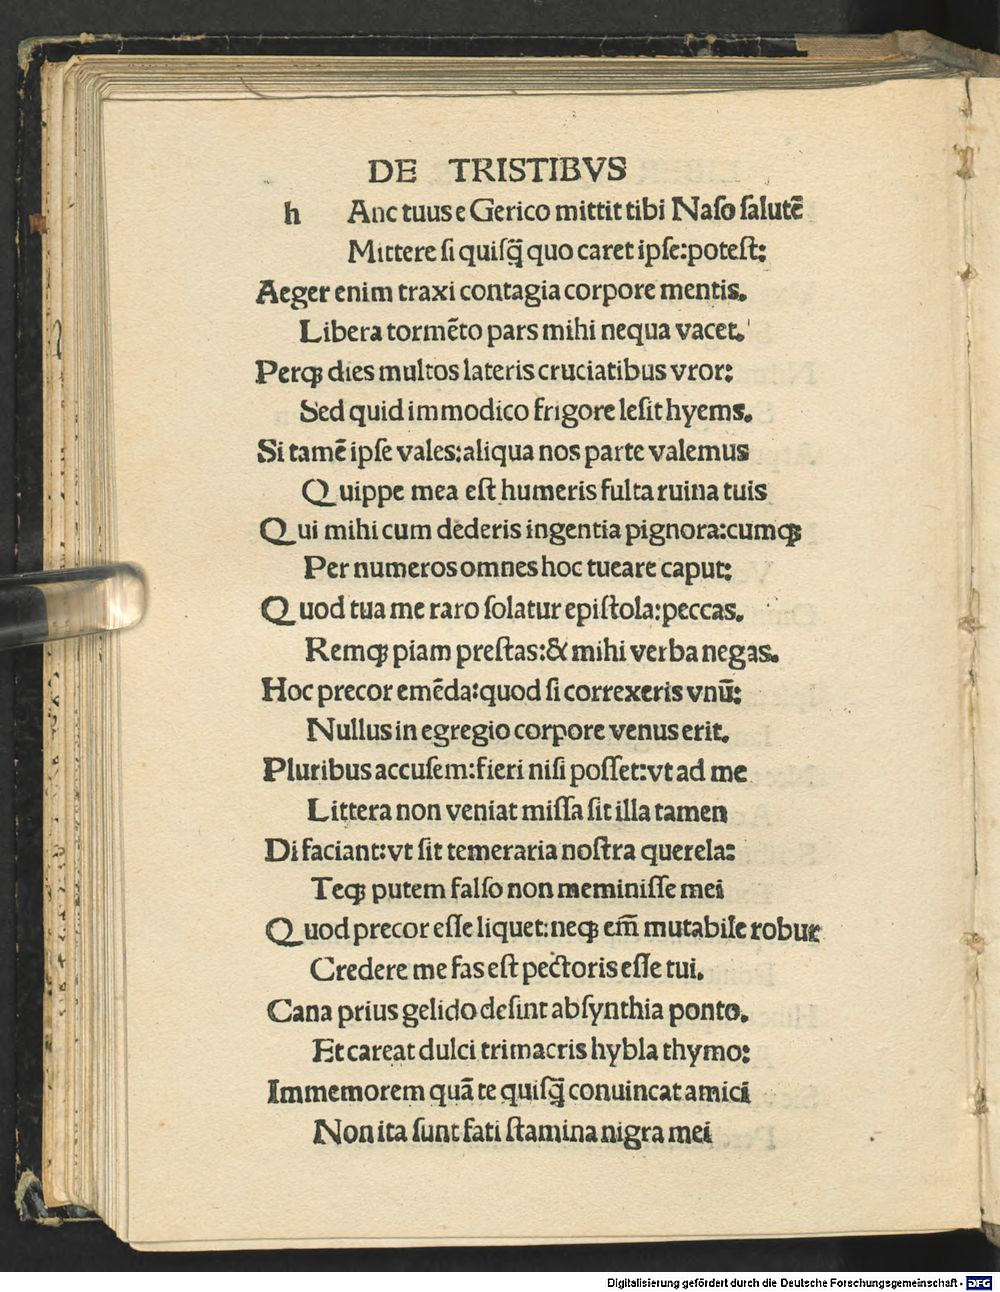 DE TRISTIBVS
h Anc tuus e Gerico mittit tibi Naso salutē
Mittere si quisq̄ quo caret ipse:potest:
Aeger enim traxi contagia corpore mentis.
Libera tormēto pars mihi nequa vacet.
Perqꝫ dies multos lateris cruciatibus vror:
Sed quid immodico frigore lesit hyems.
Si tamē ipse vales:aliqua nos parte valemus
Quippe mea est humeris fulta ruina tuis
Qui mihi cum dederis ingentia pignora:cumqꝫ
Per numeros omnes hoc tueare caput:
Quod tua me raro solatur epistola:peccas.
Remqꝫ piam prestas:& mihi verba negas.
Hoc precor emēda:quod si correxeris vnū:
Nullus in egregio corpore venus erit.
Pluribus accusem:fieri nisi posset:vt ad me
Littera non veniat missa sit illa tamen
Di faciant:vt sit temeraria nostra querela:
Teqꝫ putem falso non meminisse mei
Quod precor esse liquet:neqꝫ em̄ mutabile robur
Credere me fas est pectoris esse tui.
Cana prius gelido desint absynthia ponto.
Et careat dulci trimacris hybla thymo:
Immemorem quā te quisq̄ conuincat amici
Non ita sunt fati stamina nigra mei
Digitalisierung gefördert durch die Deutsche Forschungsgemeinschaft - DFG